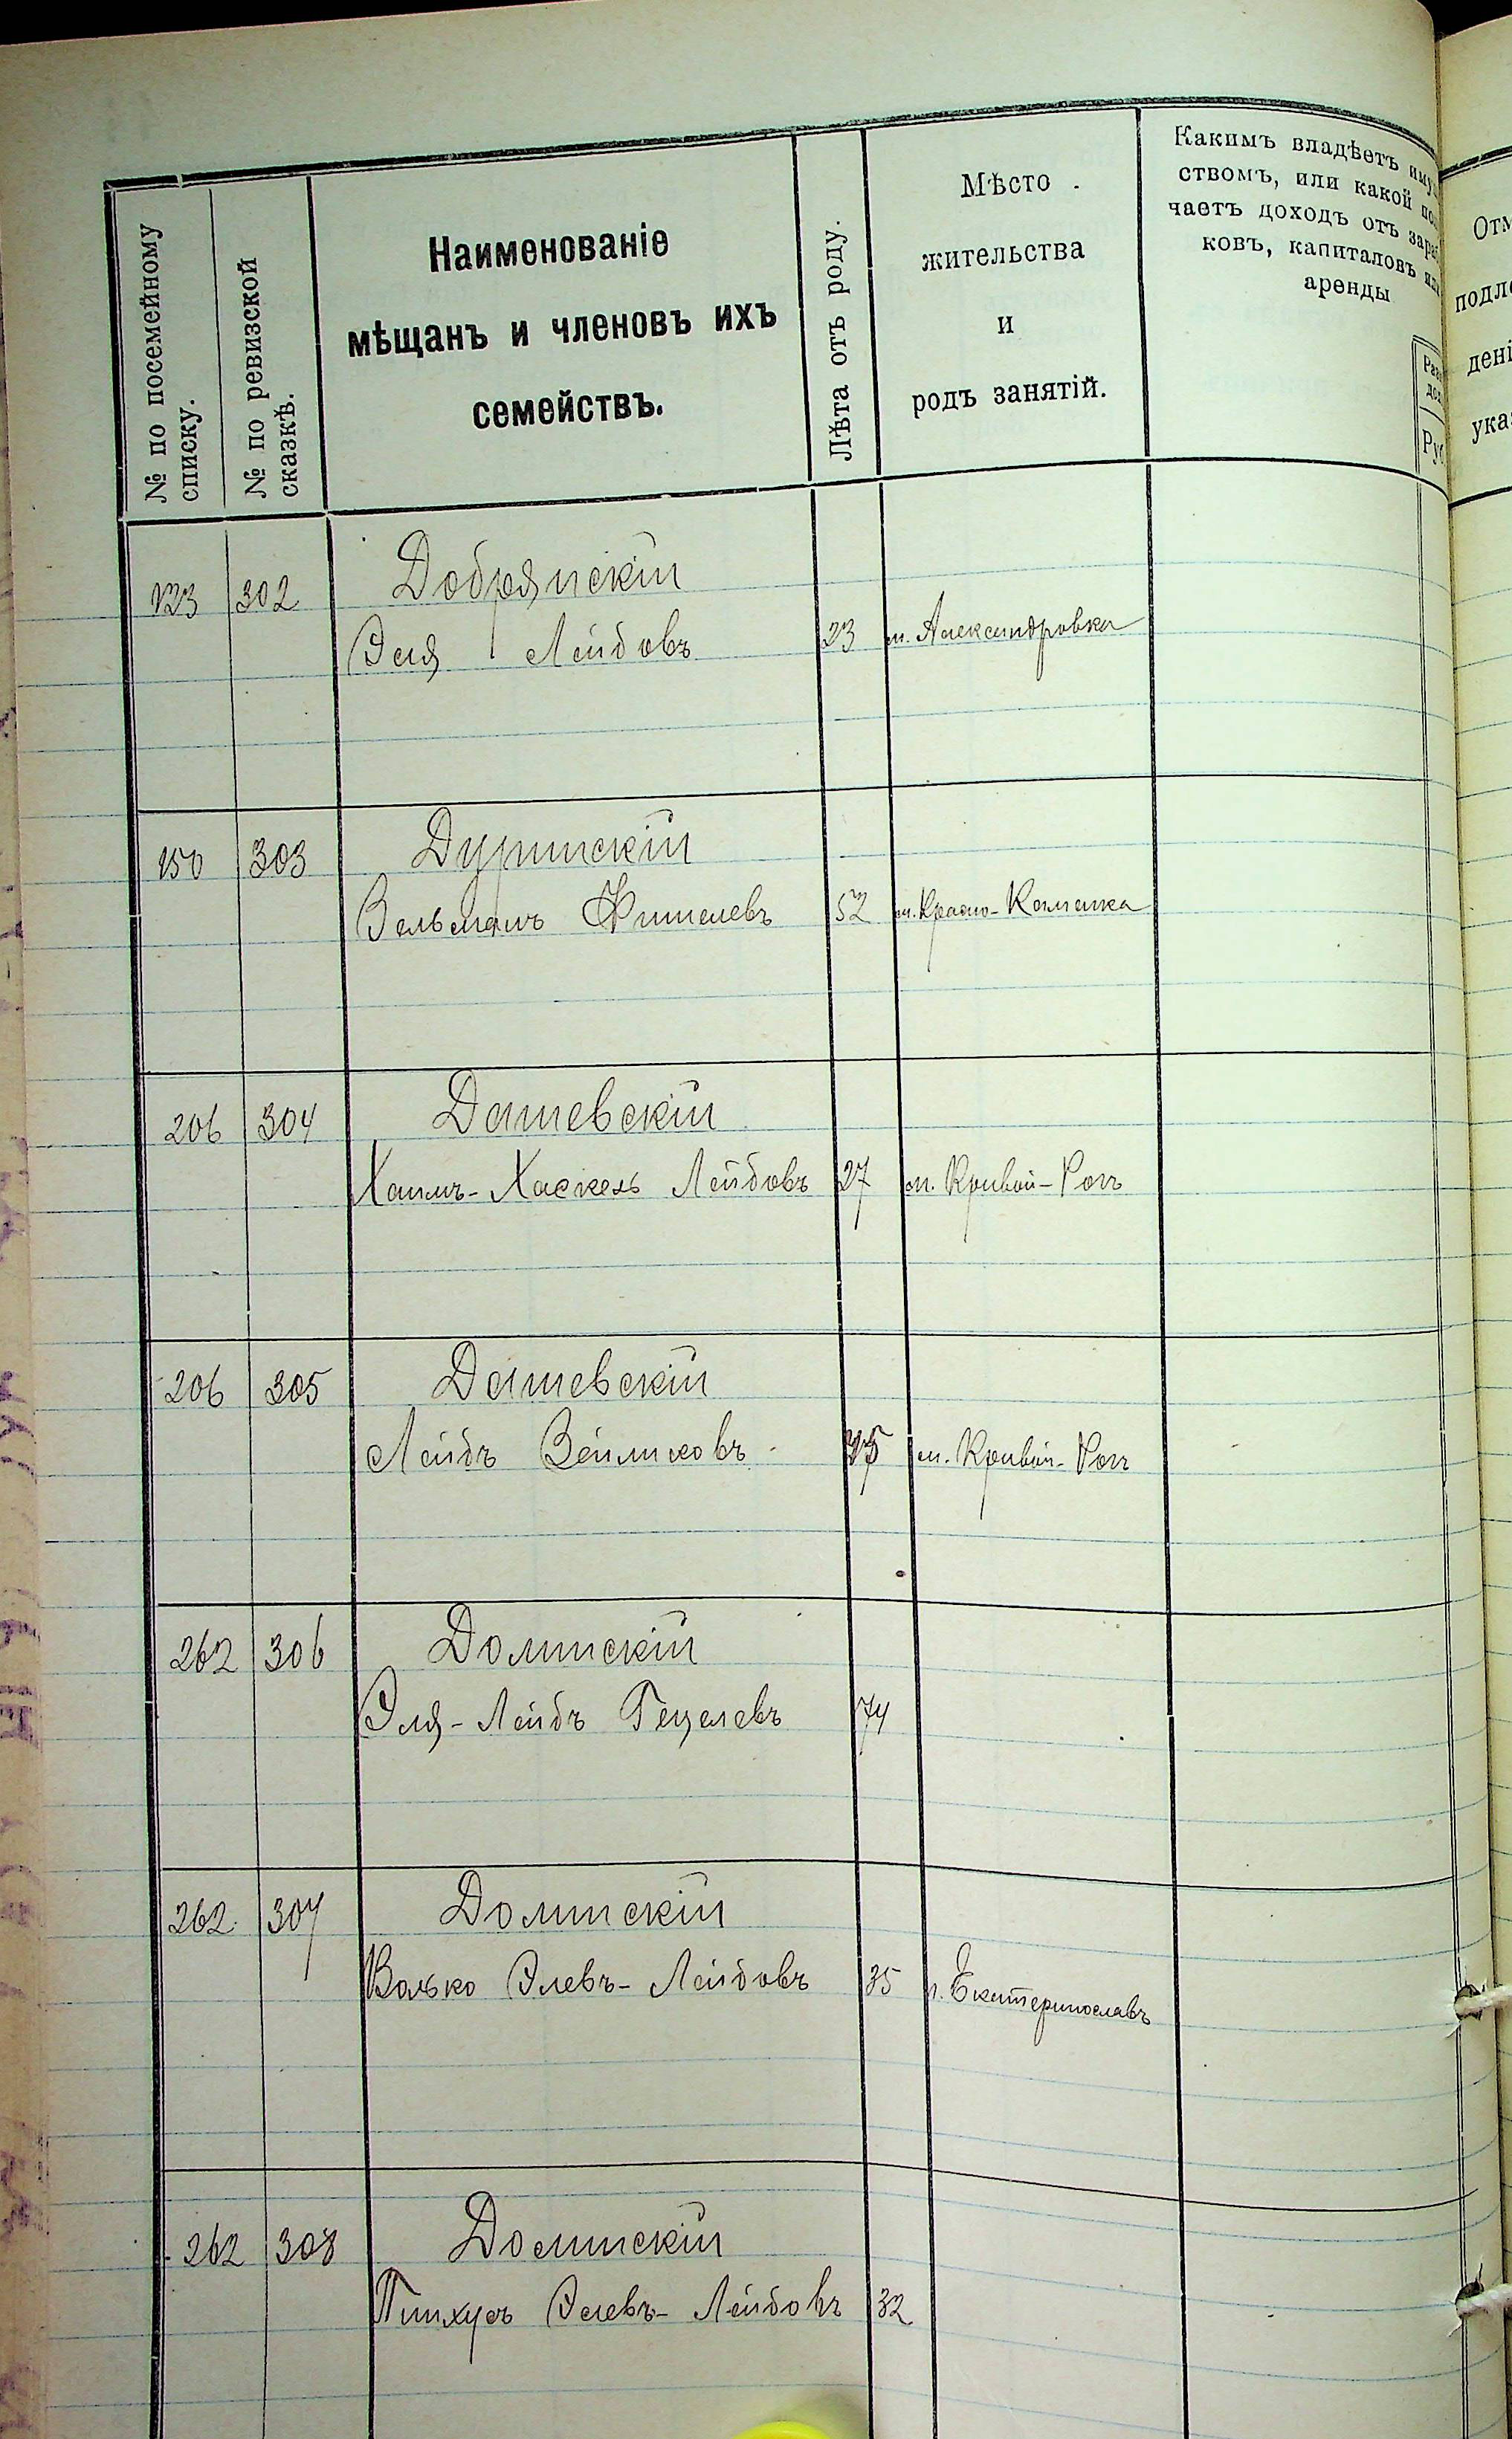 № по посемейному
списку.
№ по ревизской
сказкѣ.
Наименованіе
мѣщанъ и членовъ ихъ
семействъ.
Лѣта отъ роду.
Мѣсто
жительства
и
родъ занятій.
Какимъ владѣетъ иму
ствомъ, или какой пол
чаетъ доходъ отъ зараб
ковъ, капиталовъ или
аренды
Руб
Отм
подле
дені
ука
123 302 Добрянскій
Эля Лейбовъ 23 м. Александровка
150 303 Дуринскій
Зельманъ Фишелевъ 52 м. Красно-Каменка
206 304 Дашевскій
Хаимъ-Хаскель Лейбовъ 27 м. Кривой-Рогъ
206 305 Дашевскій
Лейбъ Зейликовъ м. Кривой-Рогъ
262 306 Долинскій
Эля-Лейбъ Гецелевъ 74
262 307 Долинскій
Волько Элевъ-Лейбовъ 35 г. Екатеринославъ
262 308 Долинскій
Пинхусъ Элевъ-Лейбовъ 32